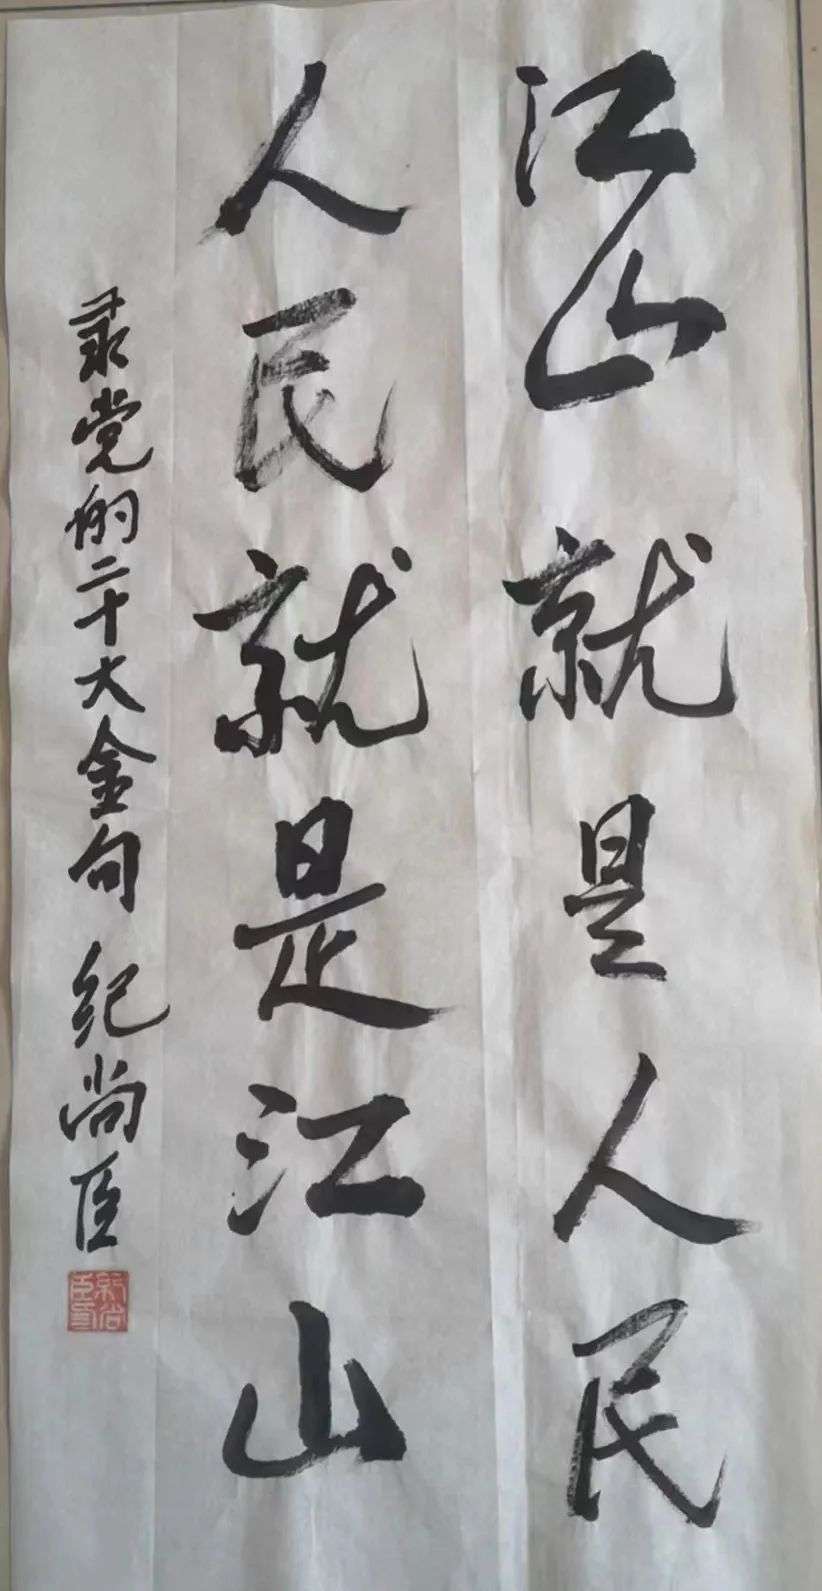 江山就是人民
人民就是江山
录党的二十大金句 纪尚臣
纪尚臣印